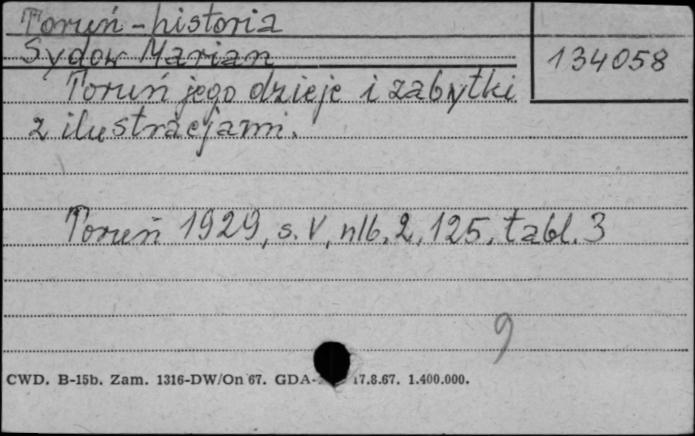 Toruń - historia
Sydow Marian
134058
Toruń jego dzieje i zabytki
z ilustracjami.
Toruń 1929, s. V, nlb. 2, 125, tabl. 3
9
CWD. B-15b. Zam. 1316-DW/On 67. GDA- 17.8.67. 1.400.000.